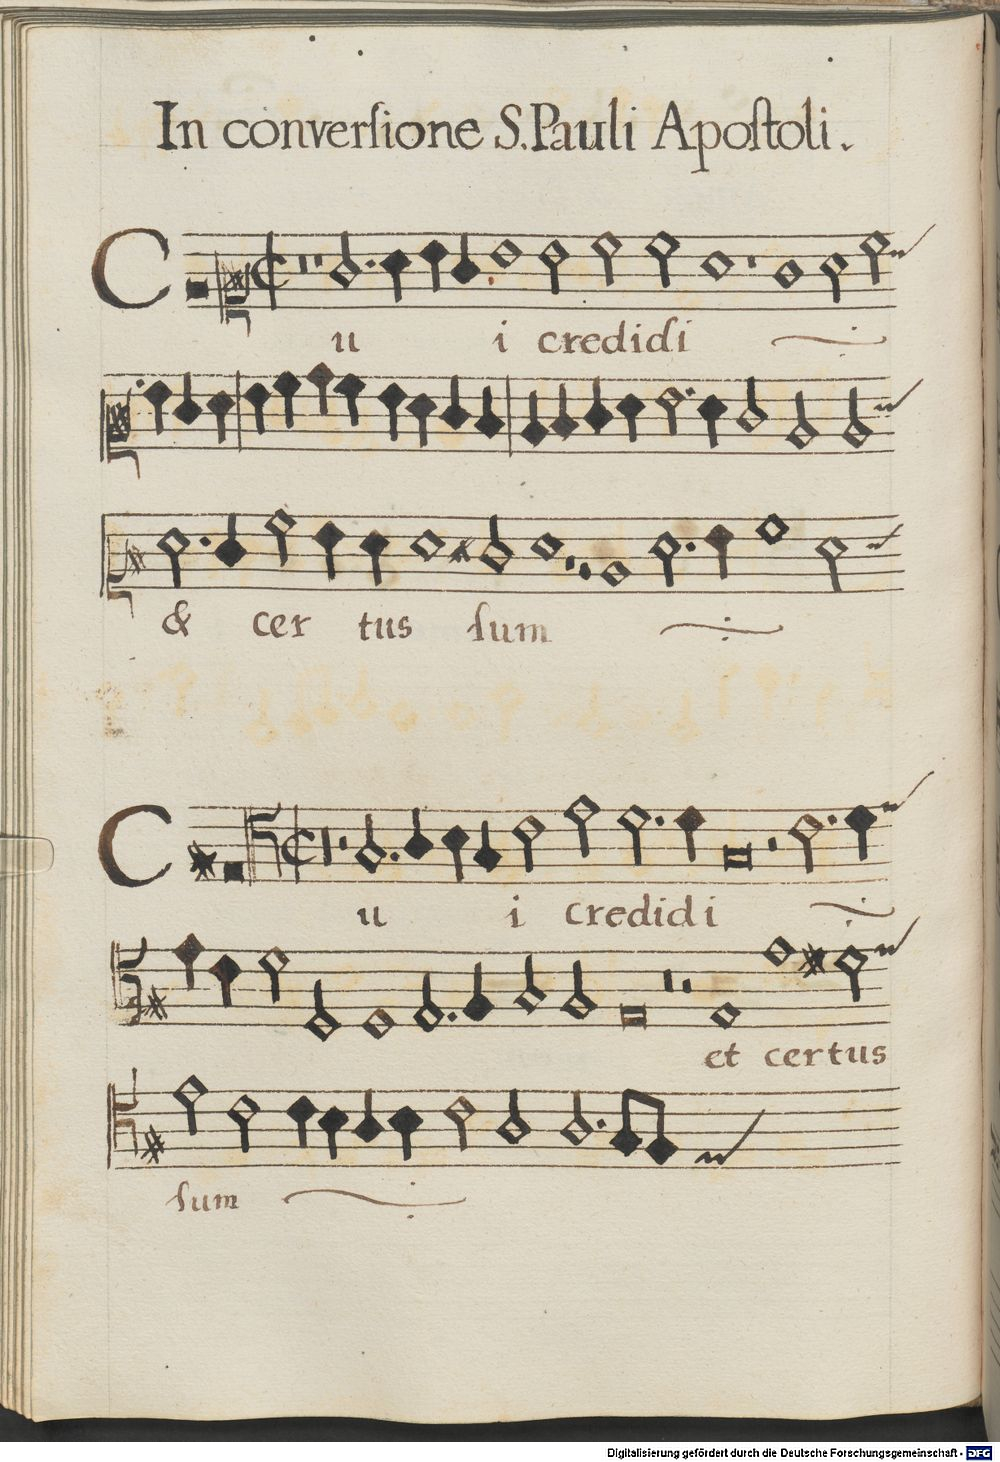 In converſione S. Pauli Apoſtoli.
C
u i credidi
& cer tus ſum
C
u i credidi
et certus
ſum
Digitalisierung gefördert durch die Deutsche Forschungsgemeinschaft - DFG